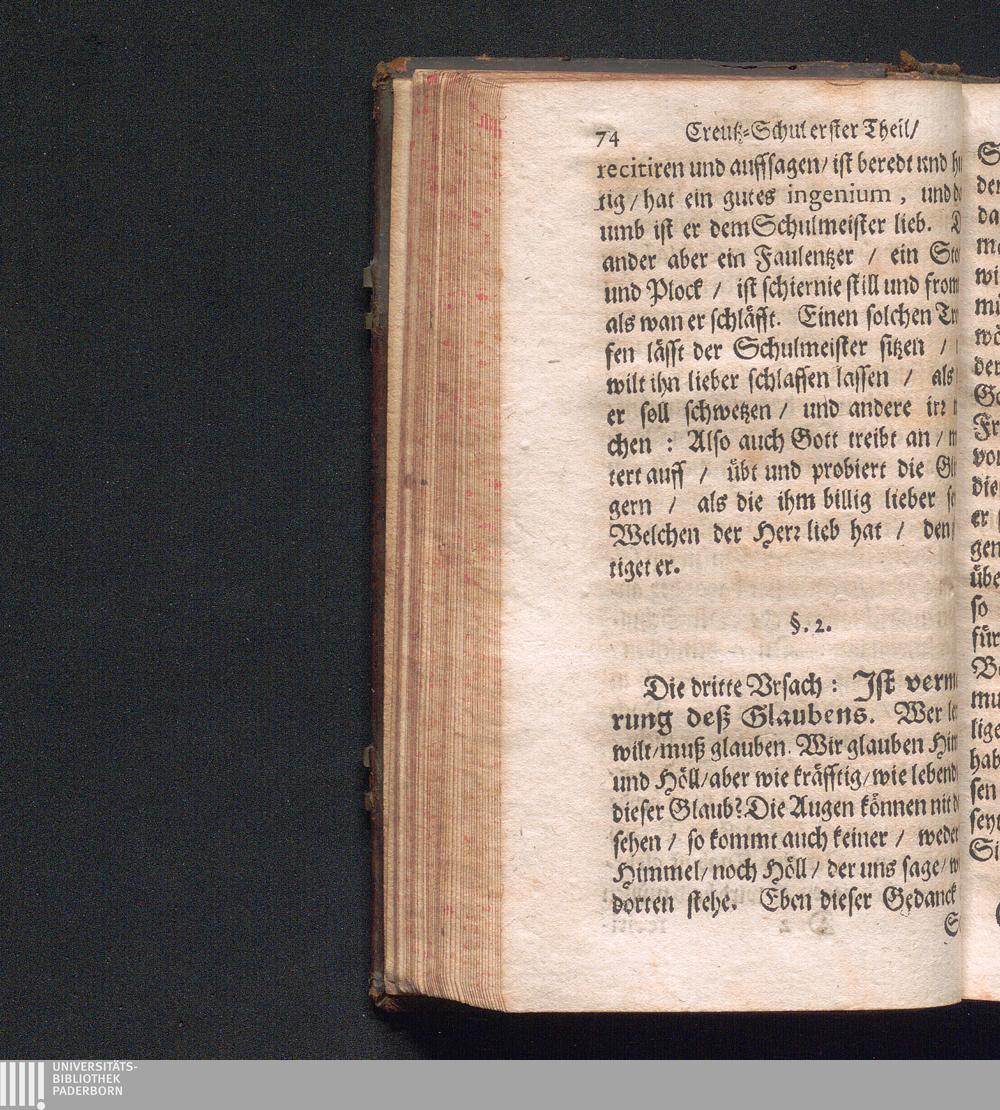 74 Creutz-Schul erster Theil/
recitiren und auffsagen/ ist beredt und
tig/ hat ein gutes ingenium, und
umb ist er dem Schulmeister lieb.
ander aber ein Faulentzer / ein
und Plock / ist schier nie still und from
als wan er schläfft. Einen solchen
fen lässt der Schulmeister sitzen /
wilt ihn lieber schlaffen lassen / als
er soll schwetzen / und andere irr
chen : Also auch Gott treibt an /
tert auff / übt und probiert die
gern / als die ihm billig lieber
Welchen der Herr lieb hat / den
tiget er.
§. 2.
Die dritte Vrsach : Ist verm
rung deß Glaubens. Wer
wilt/ muß glauben. Wir glauben
und Höll/ aber wie kräfftig/ wie lebend
dieser Glaub? Die Augen können nit
sehen / so kommt auch keiner / weder
Himmel/ noch Höll / der uns sage/
dorten stehe. Eben dieser Gedanck
der
da
wi
mü
der
Fr
von
die
er
gen
übe
so
für
mu
lige
hab
sen
seyt
UNIVERSITÄTS-
BIBLIOTHEK
PADERBORN